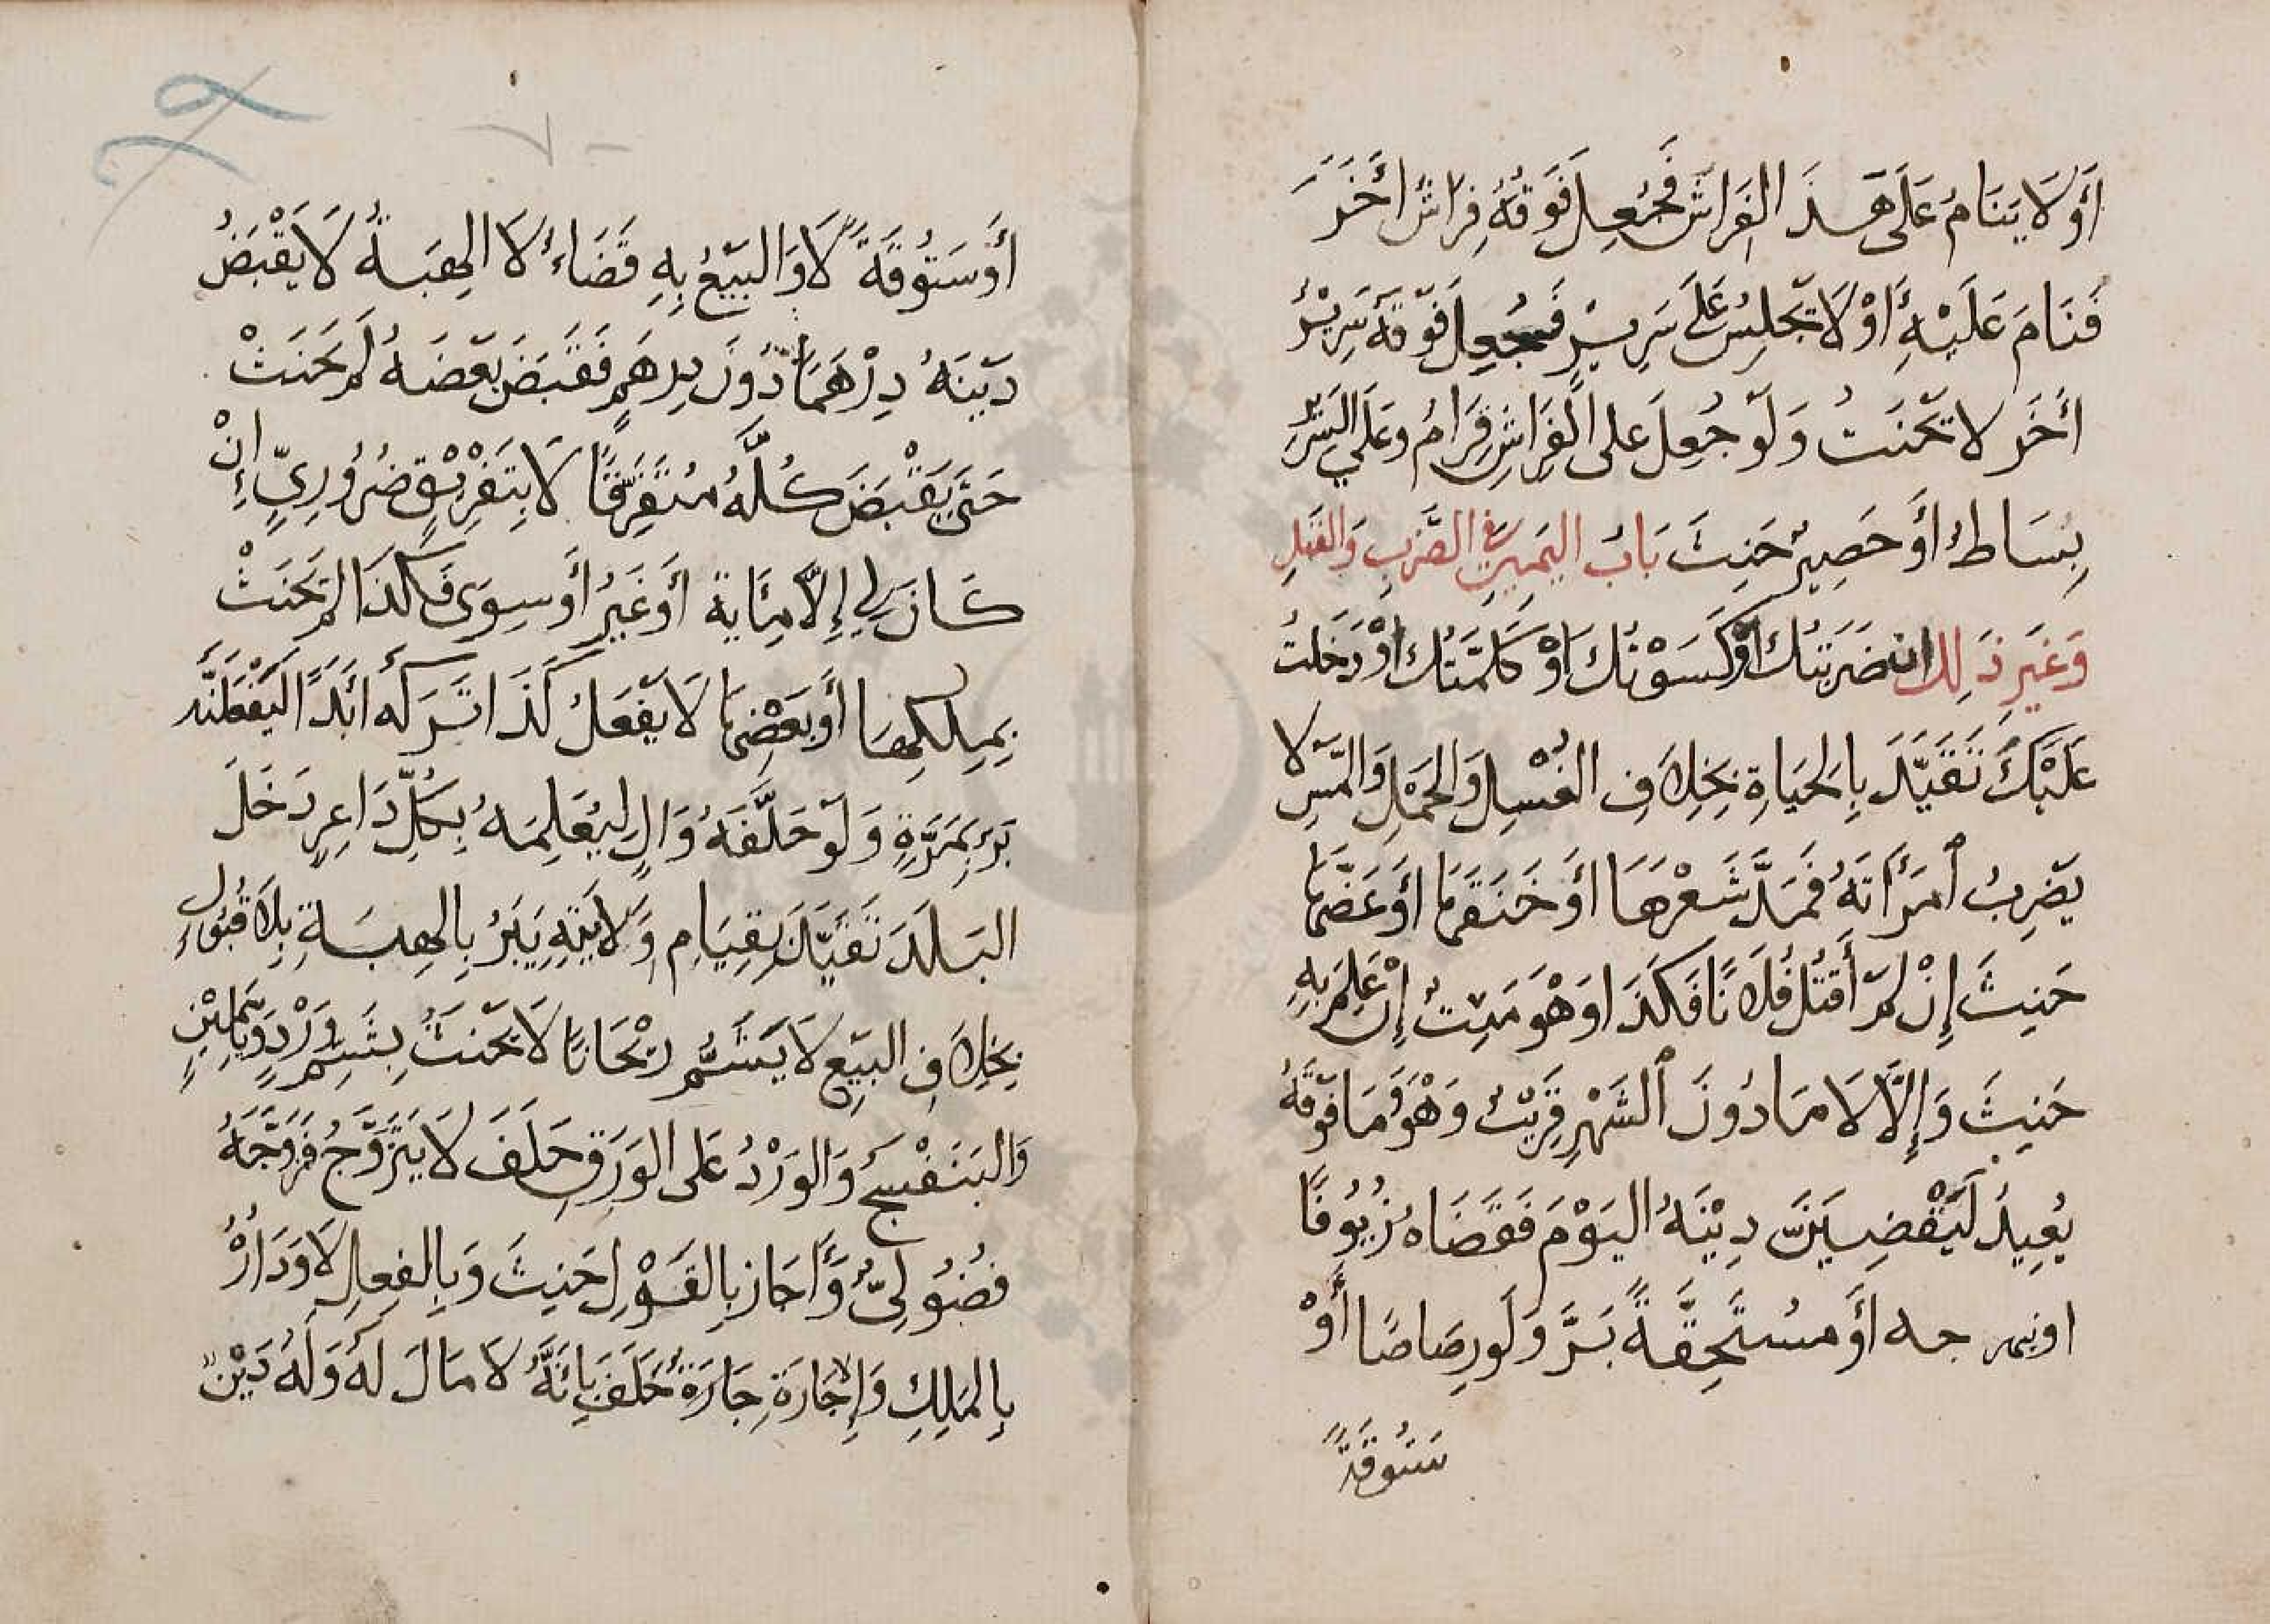 أَوْ لَا يَنَامُ عَلَى هَذَ الفَرَاشِ فَجُعِلَ فَوْقَهُ فِرَاشٌ اَخَرَ
فَنَامَ عَلَيْهِ أَوْ لَا يَجْلِسُ عَلَى سَرِيرٍ فَجُعِلَ فَوْقَهُ سَرِيرٌ
أَخَر لا يَحْنَثُ وَلَوْ جُعِلَ على الفِرَاشِ قِرَامٌ وعَلَى السَّرِيرِ
بِسَاطٌ أَوْ حَصِيرٌ حَنِثَ بَابُ اليَمِينِ فِي الضَّرْبِ وَالقَتْلِ
وَغَيْرِ ذَلِك ان ضَرَبْتُكَ أَوْ كَسَوْتُكَ اَوْ كَلَّمْتُكَ اَوْ دَخَلْتُ
عَلَيْكَ تَقَيَّدَ بِالحَيَاةِ بِخِلَافِ الغُسْلِ وَالحَمْلِ وَالمَسِّ لَا
يَضْرِبُ اُمرَأَتَهُ فَمَدَّ شَعْرَهَا أَوْ خَنَقَهَا أَوْ عَضَّهَا
حَنِثَ إِنْ لَمْ أَقْتُلْ فُلَانًا فَكَذَا وَهْوَ مَيِّتٌ إِنْ عَلِمَ بِهِ
حَنِثَ وَإِلَّا لَا مَا دُونَ ٱلشَّهْرِ قَرِيْبٌ وَهْوَ وَمَا فَوْقَهُ
بُعِيدُ لَيَقْضِيَنَّ دِيْنَهُ اليَوْمَ فَقَضَاه زُيُوفًا
او نبهرجه أَوْ مُسْتَحِقَّةً بَرَّ وَلَو رِصَاصًا أَوْ
سَتُوقَةً
أَوْ سَتُوقَةً لَا وَالبَيْعُ بِهِ قَضَاءٌ لَا الهِبَةُ لَا يَقْبَضُ
دَيْنَهُ دِرْهَمًا دُونَ دِرهَمٍ فَقَبَضَ بَعْضَهُ لَمْ يَحْنَثْ
حَتَّى يَقْبَضَ كُلَّهُ مُتَفَرِّقًا لَا بِتَفْرِيْقٍ ضُرُورِيٍّ إِنْ
كَانَ لِي إِلَّا مِئَاية أَوْ غَيْرُ أَوْ سِوَى فَكَذَا لَمْ يَحْنَثْ
بِمِلْكِهَا أَوْ بَعْضِهَا لَا يَفْعَلُ كَذَا تَرَكَهُ اَبَدًا لَيَفْعَلَنَّهُ
بَرَّ بِمَرَّةٍ وَلَوْ حَلَّفَهُ وَالٍ لِيُعْلِمَهُ بِكُلِّ دَاعِرٍ دَخَلَ
البَلَدَ تَقَيَّدَ بِقِيَامِ وَلَايَتِهِ يَبَرُّ بِالهِبَةِ بِلَا قَبُولٍ
بِخِلَافِ البَيْعِ لَا يَشَمُّ رَيْحَانًا لَا يَحْنَثُ بِشَمِّ وَرْدٍ وَيَاسَمِيْنٍ
وَالبَنَفْسَجُ وَالوَرْدُ عَلى الوَرَقِ حَلَفَ لَا يَتَزَوَّجُ فَزَوَّجَهُ
فضُولِيٌّ وَأَجَاز بِالقَوْلِ حَنِثَ وَبِالفِعلِ لَا وَدَارُهُ
بِالمِلكِ وَالإِجَارَةِ جَارَةً حَلَفَ بِاَنَّهُ لَا مَالَ لَهُ وَلَهُ دَيْنٌ